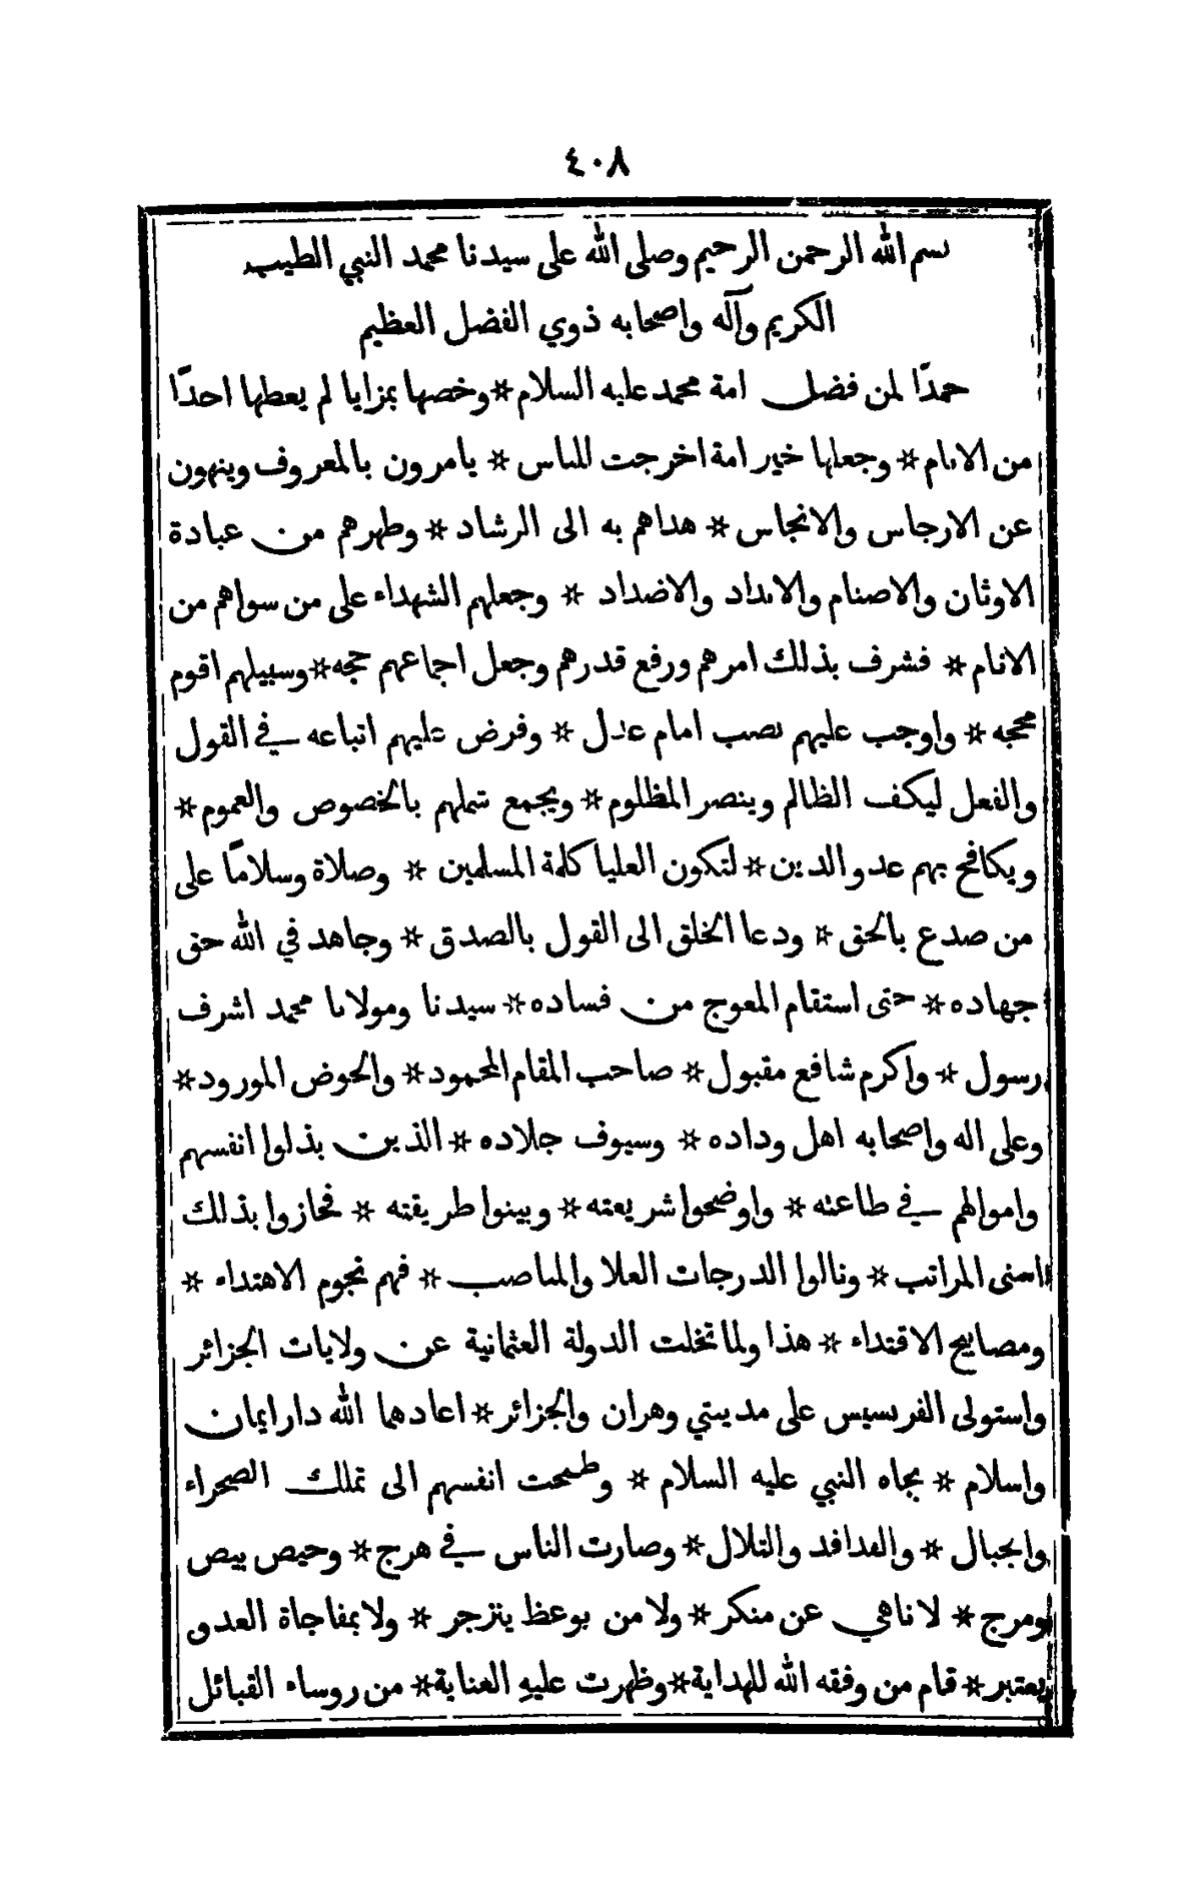 ٤٠٨
بسم الله الرحمن الرحيم وصلى الله على سيدنا محمد النبي الطيب
الكريم وآله واصحابه ذوي الفضل العظيم
حمدًا لمن فضل امة محمد عليه السلام * وخصها بمزايا لم يعطها احدًا
من الانام * وجعلها خير امة اخرجت للناس * يامرون بالمعروف وينهون
عن الارجاس والانجاس * هداهم به الى الرشاد * وطهرهم من عبادة
الاوثان والاصنام والانداد والاضداد * وجعلهم الشهداء على من سواهم من
الانام * فشرف بذلك امرهم ورفع قدرهم وجعل اجماعهم حجه * وسبيلهم اقوم
محجه * واوجب عليهم نصب امام عدل * وفرض عليهم اتباعه في القول
والفعل ليكف الظالم وينصر المظلوم * ويجمع شملهم بالخصوص والعموم *
ويكافح بهم عدو الدين * لتكون العليا كلمة المسلمين * وصلاة وسلامًا على
من صدع بالحق * ودعا الخلق الى القول بالصدق * وجاهد في الله حق
جهاده * حتى استقام المعوج من فساده * سيدنا ومولانا محمد اشرف
رسول * واكرم شافع مقبول * صاحب المقام المحمود * والحوض المورود *
وعلى اله واصحابه اهل وداده * وسيوف جلاده * الذين بذلوا انفسهم
واموالهم في طاعته * واوضحوا شريعته * وبينوا طريقته * فحازوا بذلك
اسنى المراتب * ونالوا الدرجات العلا والمناصب * فهم نجوم الاهتداء *
ومصابيح الاقتداء * هذا ولما تخلت الدولة العثمانية عن ولايات الجزائر
واستولى الفرنسيس على مدينتي وهران والجزائر * اعادهما الله دار ايمان
واسلام * بجاه النبي عليه السلام * وطمحت انفسهم الى تملك الصحراء
والجبال * والفدافد والتلال * وصارت الناس في هرج * وحيص بيص
ومرج * لا ناهي عن منكر * ولا من بوعظ ينزجر * ولا بمفاجاة العدو
يعتبر * قام من وفقه الله للهداية * وظهرت عليه العناية * من روساء القبائل